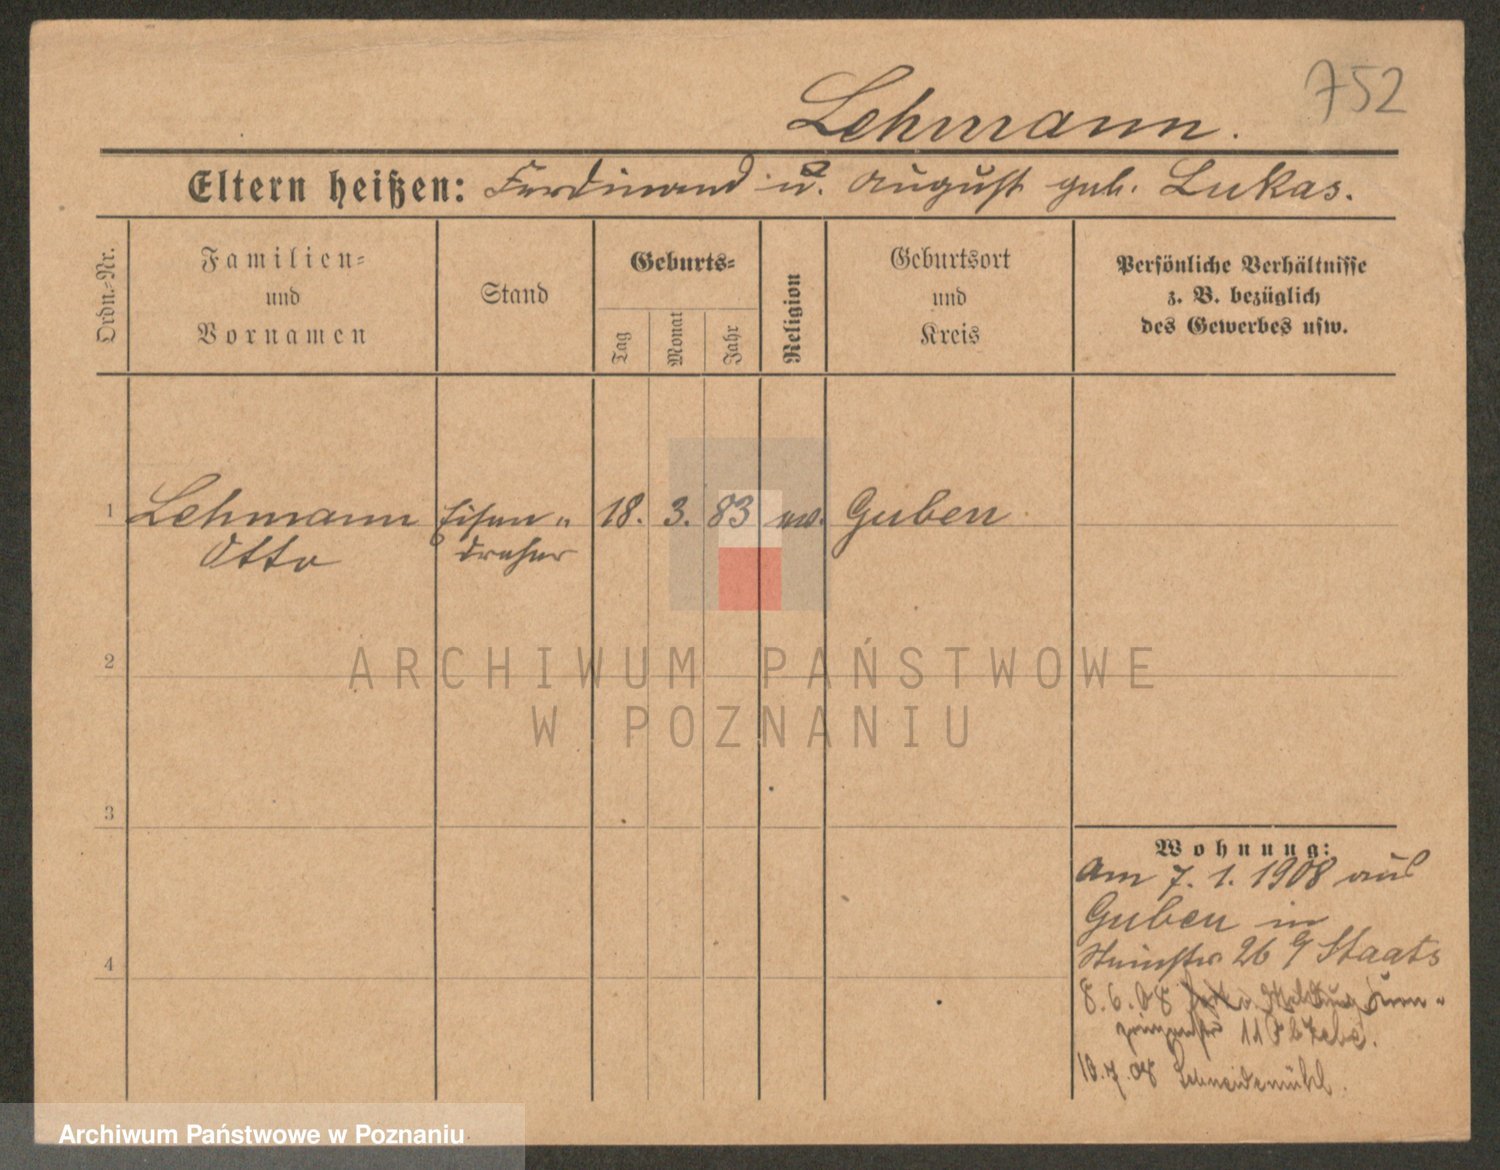 752
Lehmann.
Eltern heißen: Ferdinand u. August geb. Lukas.
Ordn.-Nr.
Familien-
und
Vornamen
Stand
Geburts-
Tag
Monat
Jahr
Religion
Geburtsort
und
Kreis
Persönliche Verhältnisse
z. B. bezüglich
des Gewerbes usw.
1 Lehmann Eisen- 18. 3. 83 ev. Guben
Otto dreher
2
ARCHIWUM PAŃSTWOWE
W POZNANIU
3
Wohnung:
Am 7. 1. 1908 aus
Guben in
26 Staats
4
8. 6. 08 Meldung
11
10. 7. 08 Schneidemühl.
Archiwum Państwowe w Poznaniu